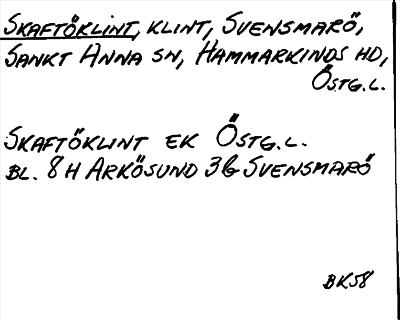 SKAFTÖKLINT, KLINT, SVENSMARÖ,
SANKT ANNA SN, HAMMARKINDS HD,
ÖSTG.L.
SKAFTÖKLINT EK ÖSTG.L.
BL. 8 H ARKÖSUND 3G SVENSMARÖ
BK58